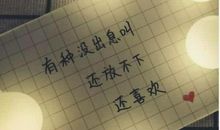 有种没出息叫
还放不下
还喜欢